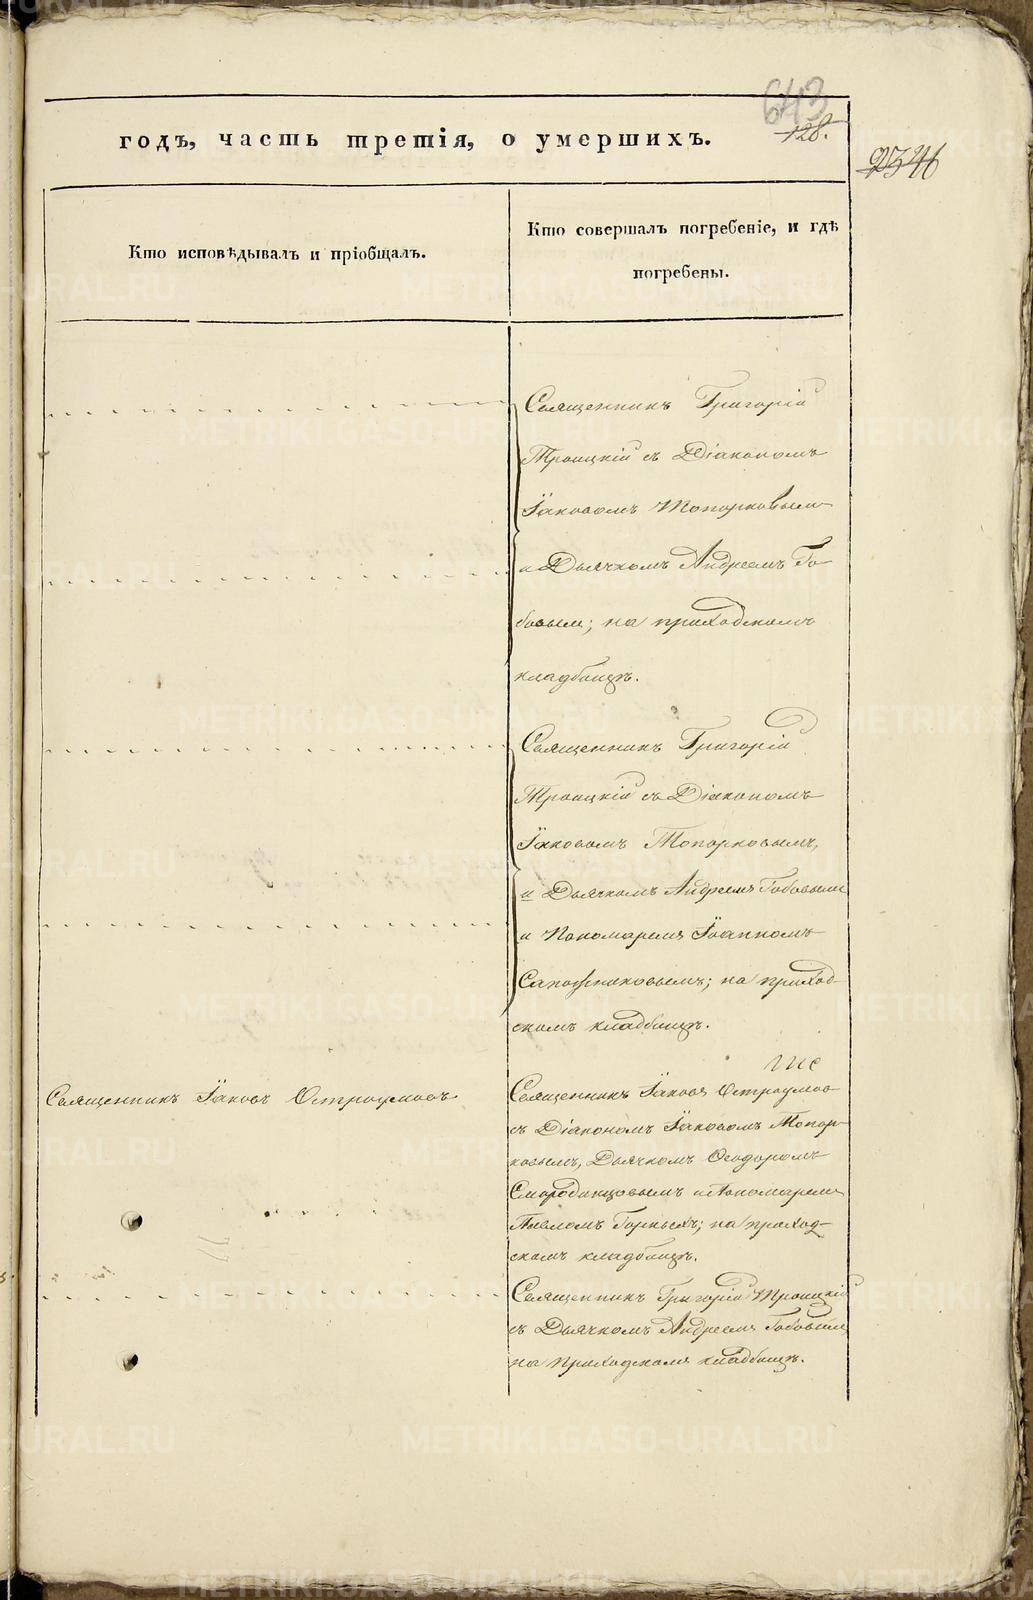 643
годъ, часть третія, о умершихъ.
128.
2346
Кто исповѣдывалъ и пріобщалъ.
Кто совершалъ погребеніе, и гдѣ
погребены.
Священникъ Григорій
Троицкій съ Діакономъ
Іаковомъ Топорковым
и Дьячкомъ Андреемъ Го-
бовым; на приходскомъ
кладбищѣ.
Священникъ Григорій
Троицкій съ Діакономъ
Іаковомъ Топорковымъ,
и Дьячкомъ Андреемъ Гобовым
и Пономаремъ Іоанномъ
Сапожниковымъ; на приход-
скомъ кладбищѣ.
Священникъ Іаковъ Остроумовъ
Священникъ Іаковъ Остроумов
съ Діакономъ Іаковомъ Топор-
ковымъ, Дьячкомъ Ѳеодоромъ
Смородинцовымъ и Пономаремъ
Павломъ Горныхъ; на приход-
скомъ кладбищѣ.
Священникъ Григорій Троицкій
съ Дьячкомъ Андреемъ Гобовым
на приходскомъ кладбищѣ.
METRIKI.GASO-URAL.RU